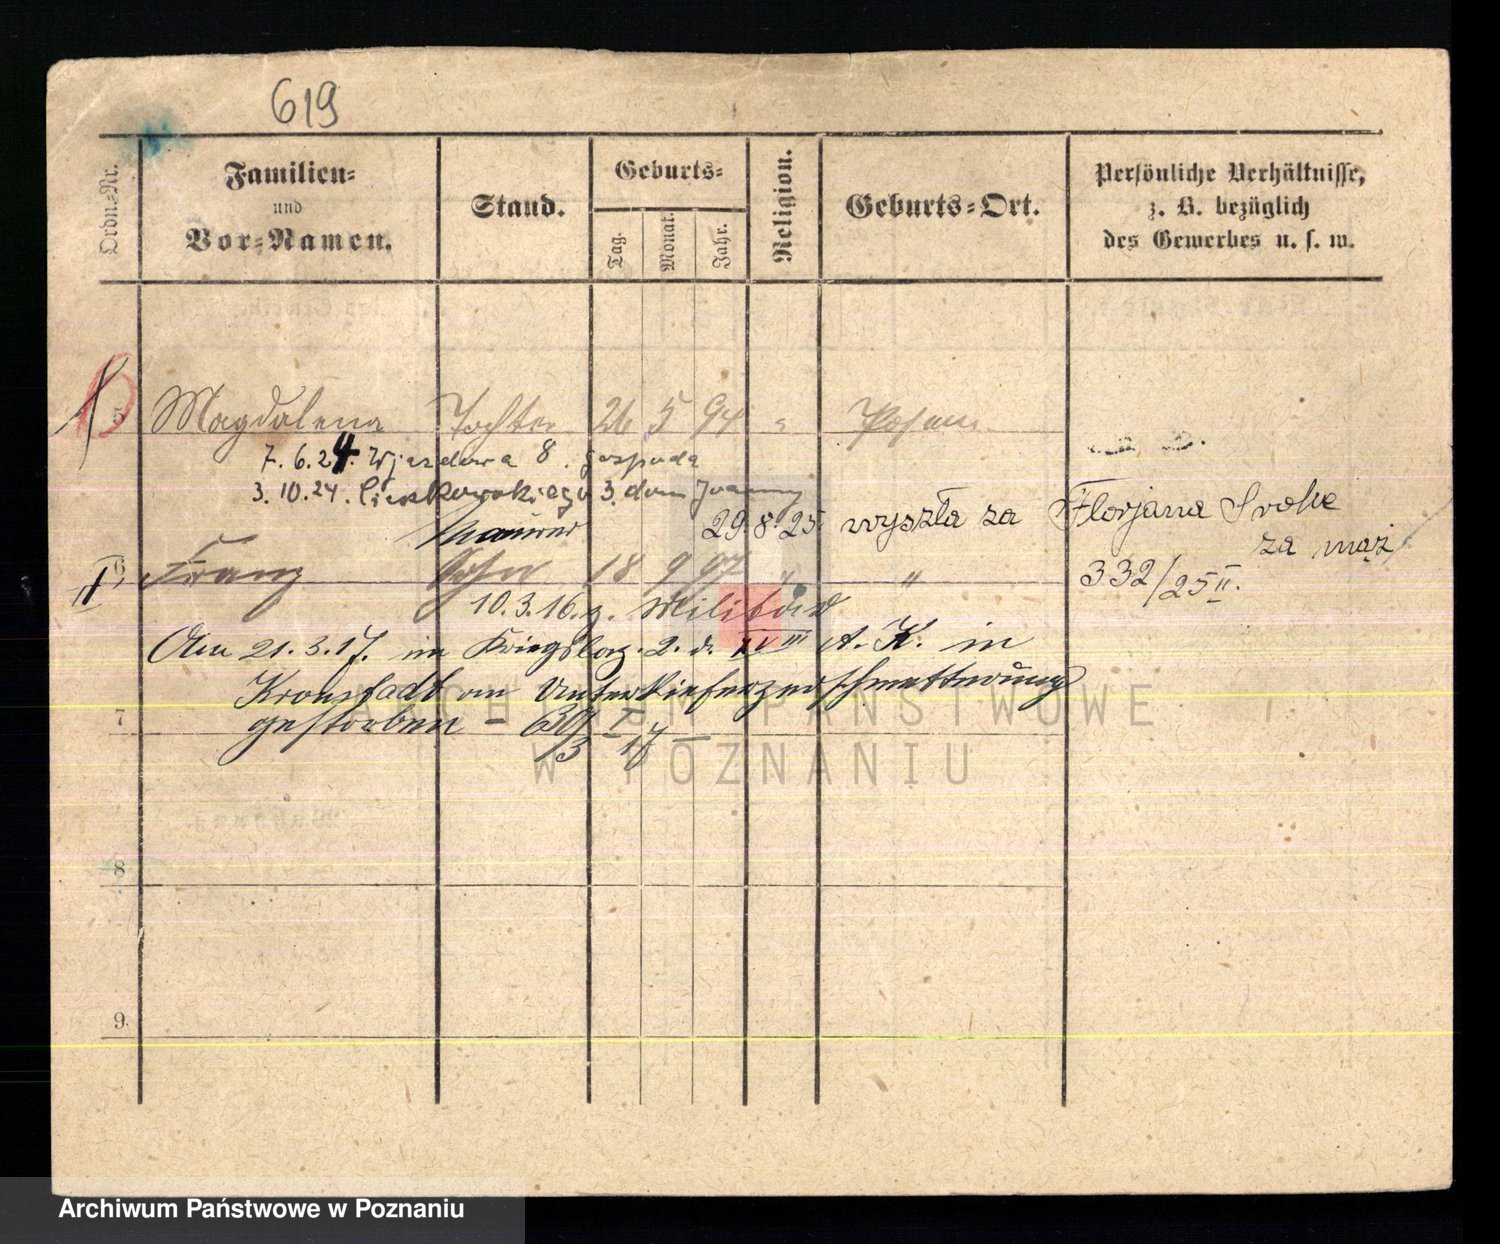 619
Ordn.-Nr.
Familien-
und
Vor-Namen.
Stand.
Geburts-
Tag.
Monat.
Jahr.
Religion.
Geburts-Ort.
Persönliche Verhältnisse,
z. B. bezüglich
des Gewerbes u. s. w.
5 Magdalena Tochter 26 5 94 " Posen
7. 6. 24. Wjazdowa 8. gospoda
3. 10. 24. 3. dom
29. 8. 25. wyszła za Florjana
za mąż
332/25 II.
6 Franz Sohn 18 9 97 " "
10. 3. 16. z. Militär
Am 21. 3. 17. im Kriegslaz. 2. d. A. K. in
Kronstadt an Unterkieferzerschmetterung
gestorben –
7
8
9.
ARCHIWUM PAŃSTWOWE
W POZNANIU
Archiwum Państwowe w Poznaniu